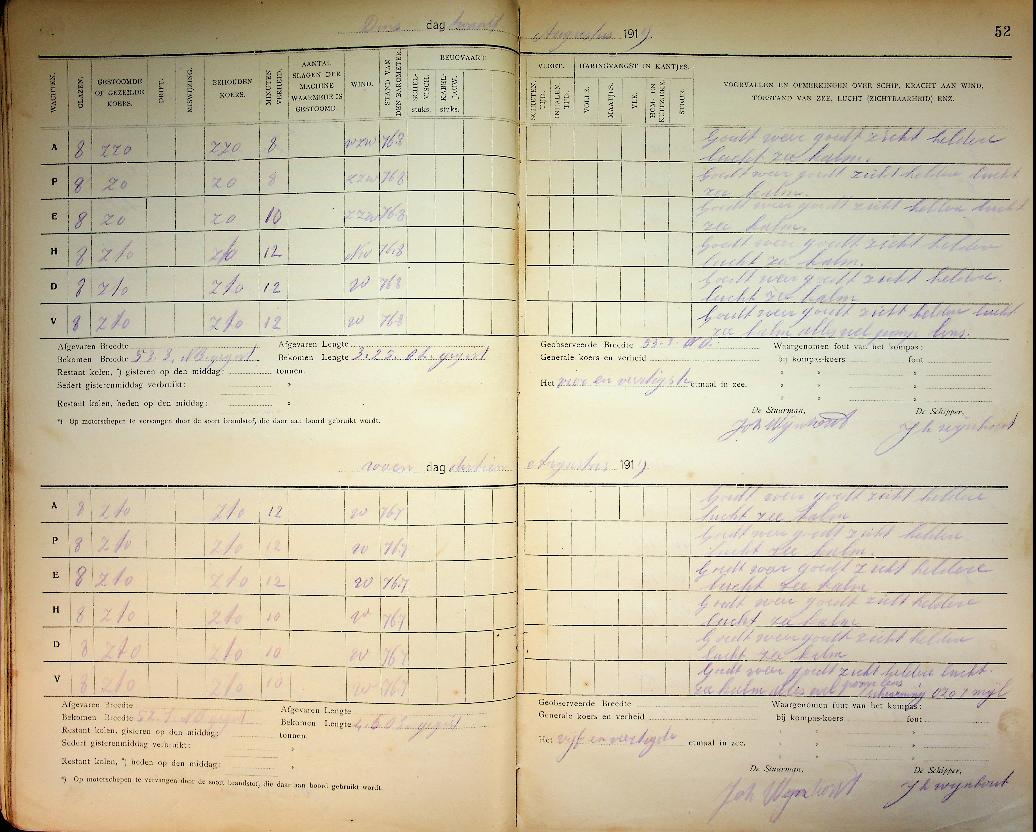 Dins dag twaalf Augustus 1919.
52
WACHTEN. GLAZEN. GESTOOMDE OF GEZEILDE KOERS. DRIFT. MISWIJZING. BEHOUDEN KOERS. MINUTEN VERHEID. AANTAL SLAGEN DER MACHINE WAARMEDE IS GESTOOMD. WIND. STAND VAN DEN BAROMETER. BEUGVAART. SCHELVISCH. stuks. KABELJAUW. stuks.
VLEET. HARINGVANGST IN KANTJES. VOLLE. MAATJES. YLE. STEURT. VOORVALLEN EN OPMERKINGEN OVER SCHIP, KRACHT AAN WIND, TOESTAND VAN ZEE, LUCHT (ZICHTBAARHEID) ENZ.
A 8 zzo zzo 8 wzw 768 Goedt weer goedt zicht heldere
lucht zee kalm.
P 8 zo zo 8 zzw 768 Goedt weer goedt zicht heldere lucht
zee kalm.
E 8 zo zo 10 zzw 768 Goedt weer goedt zicht heldere lucht
zee kalm.
H 8 zto zto 12 Nw 768 Goedt weer goedt zicht heldere
lucht zee kalm.
D 8 zto zto 12 w 768 Goedt weer goedt zicht heldere.
lucht zee kalm
V 8 zto zto 12 w 768 Goedt weer goedt zicht heldere lucht
zee kalm alles wel pomp lens.
Afgevaren Breedte Afgevaren Lengte
Bekomen Breedte 53.3. NB gegist Bekomen Lengte 3.22. OL. gegist
Restant kolen, *) gisteren op den middag: tonnen.
Sedert gisterenmiddag verbruikt: "
Restant kolen, heden op den middag: "
*) Op motorschepen te vervangen door de soort brandstof, die daar aan boord gebruikt wordt.
Geobserveerde Breedte 53.3 NB. Waargenomen fout van het kompas:
Generale koers en verheid bij kompas-koers fout
Het vier en veertigste etmaal in zee.
De Stuurman, De Schipper,
Joh Wijnhout J h wijnhout
woen dag dertien Augustus 1919
A 8 zto zto 12 w 767 Goedt weer goedt zicht heldere
lucht zee kalm
P 8 zto zto 12 w 767 Goedt weer goedt zicht heldere
lucht zee kalm.
E 8 zto zto 12 w 767 Goedt weer goedt zicht heldere
lucht zee kalm
H 8 zto zto 10 w 767 Goedt weer goedt zicht heldere
lucht zee kalm
D 8 zto zto 10 w 767 Goedt weer goedt zicht heldere
lucht zee kalm
V 8 zto zto 10 w 767 Goedt weer goedt zicht heldere lucht
zee kalm alles wel pomp lens
Afgevaren Breedte Afgevaren Lengte
Bekomen Breedte NB gegist Bekomen Lengte OL. gegist
Restant kolen, gisteren op den middag: tonnen.
Sedert gisterenmiddag verbruikt: "
Restant kolen, *) heden op den middag: "
*) Op motorschepen te vervangen door de soort brandstof, die daar aan boord gebruikt wordt.
Geobserveerde Breedte Waargenomen fout van het kompas:
Generale koers en verheid bij kompas-koers fout
Het vijf en veertigste etmaal in zee.
De Stuurman, De Schipper,
Joh Wijnhout J h wijnhout